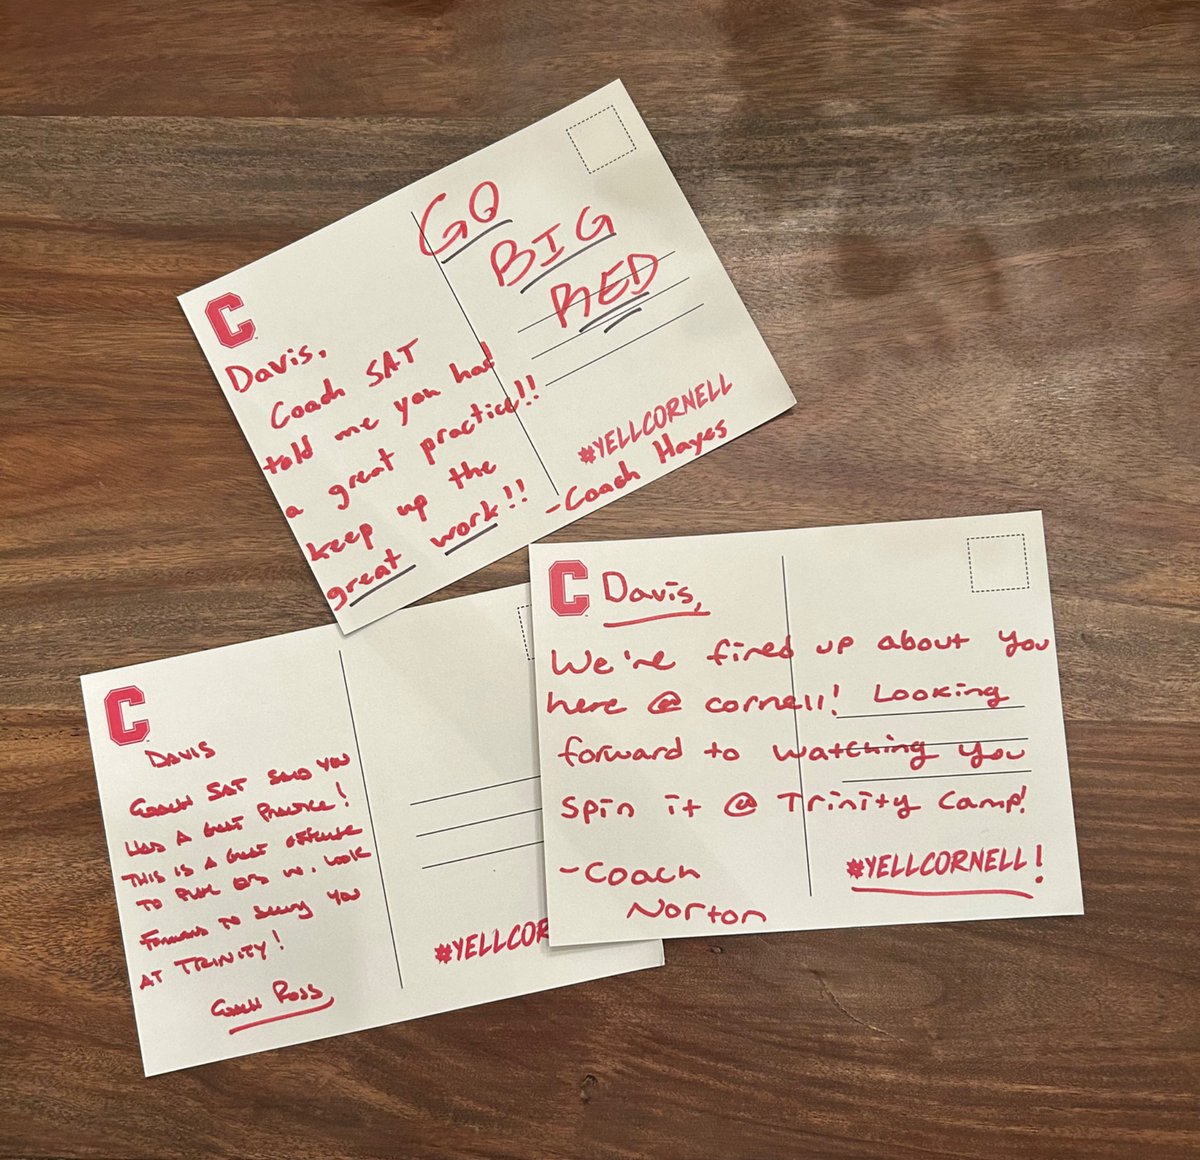 C
GO
BIG
RED
Davis,
Coach SAT
told me you had
a great practice!!
keep up the
great work!!
#YELLCORNELL
-Coach Hayes
C
Davis,
We're fired up about you
here @ cornell! Looking
forward to watching you
spin it @ Trinity Camp!
-Coach
Norton
#YELLCORNELL!
C
DAVIS
COACH SAT SAID YOU
HAD A GREAT PRACTICE!
THIS IS A GREAT OFFENSE
TO PLAY QB IN. LOOK
FORWARD TO SEEING YOU
AT TRINITY!
COACH ROSS
#YELLCOR